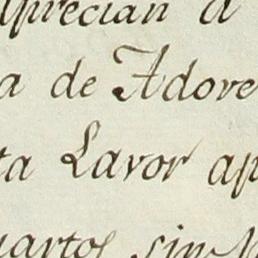 aprecian a
a de Adore
ta Lavor ap
uartos sin